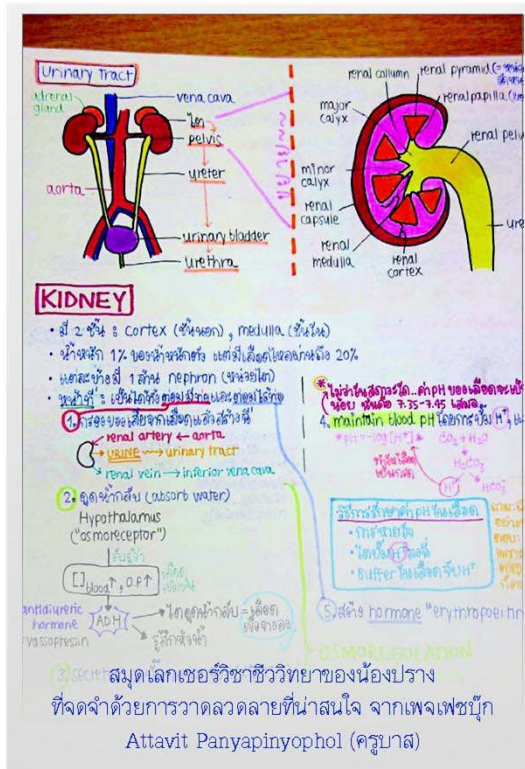 Urinary tract
adrenal gland
vena cava
ไต
pelvis
aorta
ureter
urinary bladder
urethra
renal collumn
renal pyramid
renal papilla
major calyx
renal pelv
minor calyx
ure
renal capsule
renal medulla
renal cortex
KIDNEY
• มี 2 ชั้น : cortex (ชั้นนอก), medulla (ชั้นใน)
• น้ำหนัก 1% ของน้ำหนักตัว แต่มีเลือดไหลผ่านถึง 20%
• แต่ละข้างมี 1 ล้าน nephron (หน่วยไต)
• หน้าที่ : เป็นได้ทั้งต่อมมีท่อและต่อมไร้ท่อ
1. กรองของเสียจากเลือดแล้วสร้างฉี่
renal artery ← aorta
URINE → urinary tract
renal vein → inferior vena cava
2. ดูดน้ำกลับ (absorb water)
Hypothalamus
("osmoreceptor")
[ ]blood↑, O.P↑
antidiuretic hormone
vasopressin
ADH
ไตดูดน้ำกลับ = เลือด
รู้สึกหิวน้ำ
3.
* ไม่ว่าในสภาวะใด..ค่า pH ของเลือดจะ
น้อย นั่นคือ 7.35-7.45 เสมอ
4. maintain blood pH โดยการขับ H⁺,
* pH = -log[H⁺]
CO₂ + H₂O
H₂CO₃
H⁺
HCO₃⁻
วิธีการรักษาค่า pH ในเลือด
• การหายใจ
• ไตขับ H⁺ลงฉี่
• Buffer ในเลือดจับ H⁺
5. สร้าง hormone "erythropoetin
OSMOREGULATION
สมุดเล็กเชอร์วิชาชีววิทยาของน้องปราง
ที่จดจำด้วยการวาดลวดลายที่น่าสนใจ จากเพจเฟซบุ๊ก
Attavit Panyapinyophol (ครูบาส)